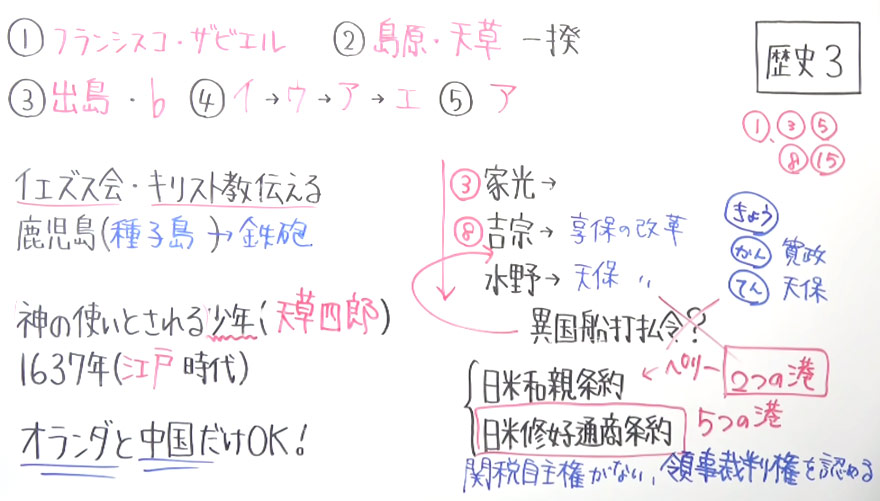 ① フランシスコ・ザビエル ② 島原・天草 一揆
③ 出島・b ④ イ→ウ→ア→エ ⑤ ア
歴史3
① ③ ⑤
⑧ ⑮
イエズス会・キリスト教伝える
鹿児島(種子島)→鉄砲
神の使いとされる少年(天草四郎)
1637年(江戸時代)
オランダと中国だけOK!
③ 家光→
⑧ 吉宗→ 享保の改革
水野→ 天保 〃
異国船打払令?
日米和親条約 ← ペリー 2つの港
日米修好通商条約 5つの港
関税自主権がない、領事裁判権を認める
きょう
かん 寛政
てん 天保